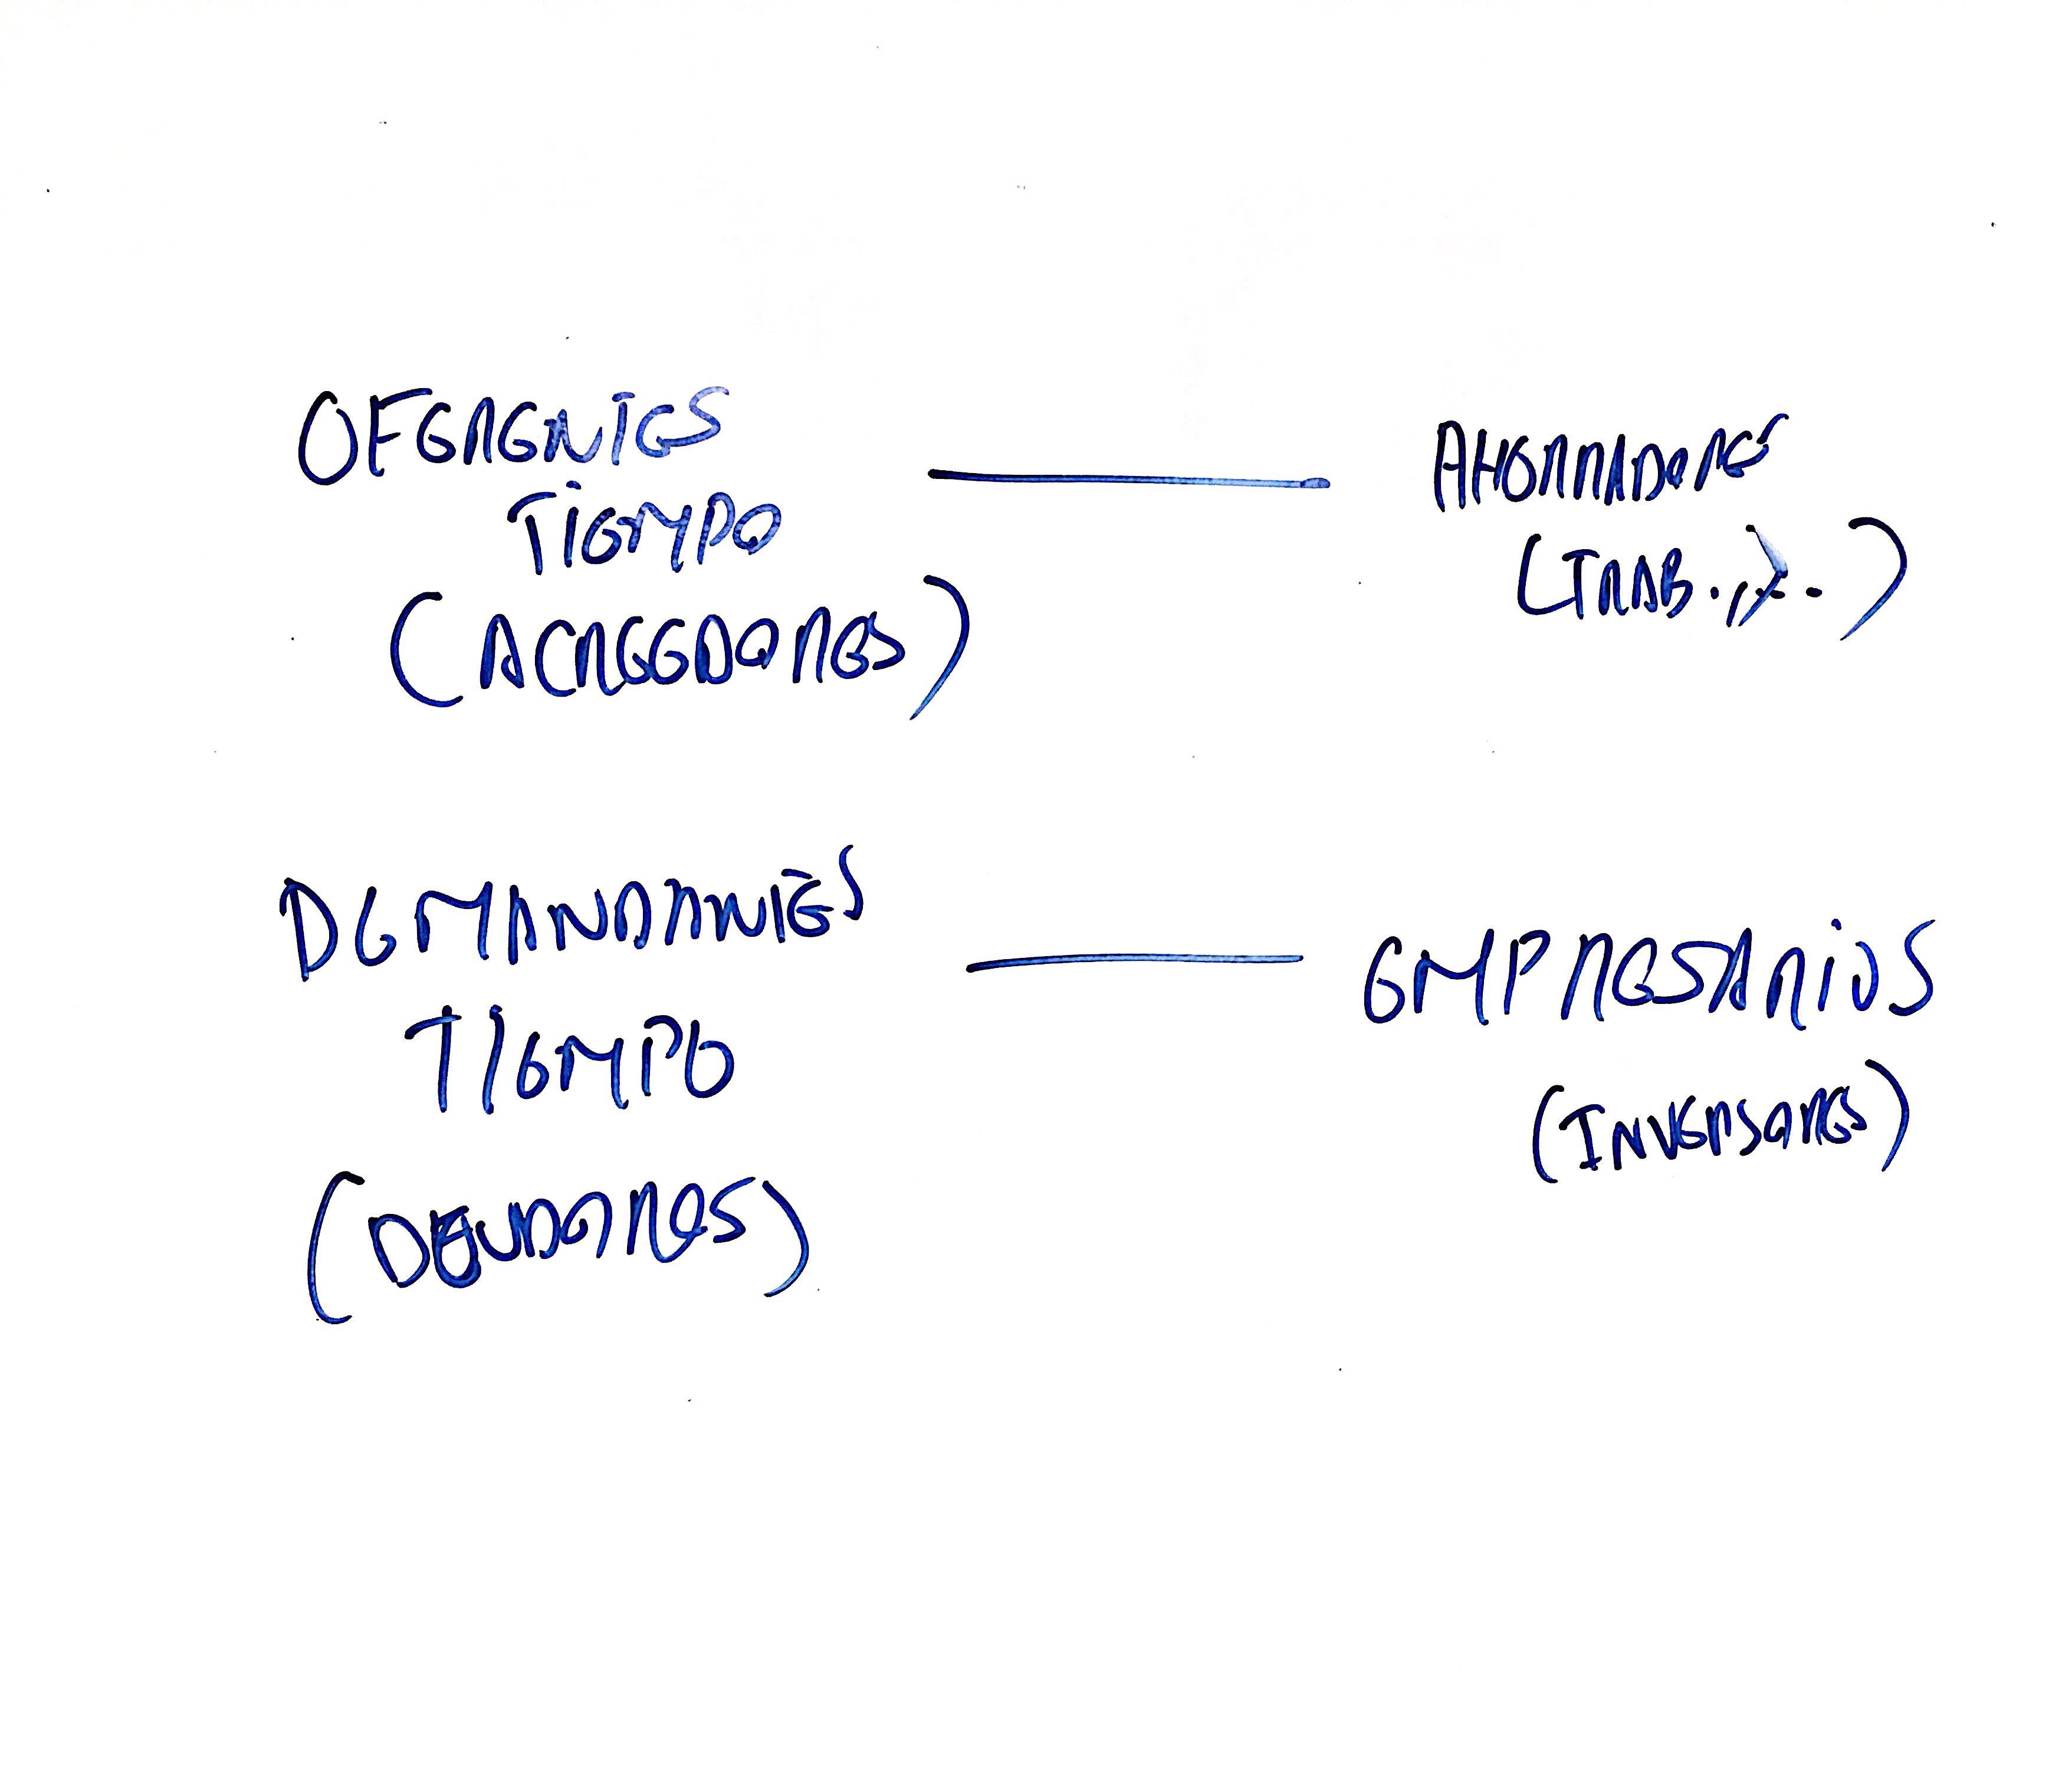 OFERENTES
TIEMPO
(ACREEDORES)
AHORRADORES
(TRAB...)
DEMANDANTES
TIEMPO
(DEUDORES)
EMPRESARIOS
(INVERSORES)